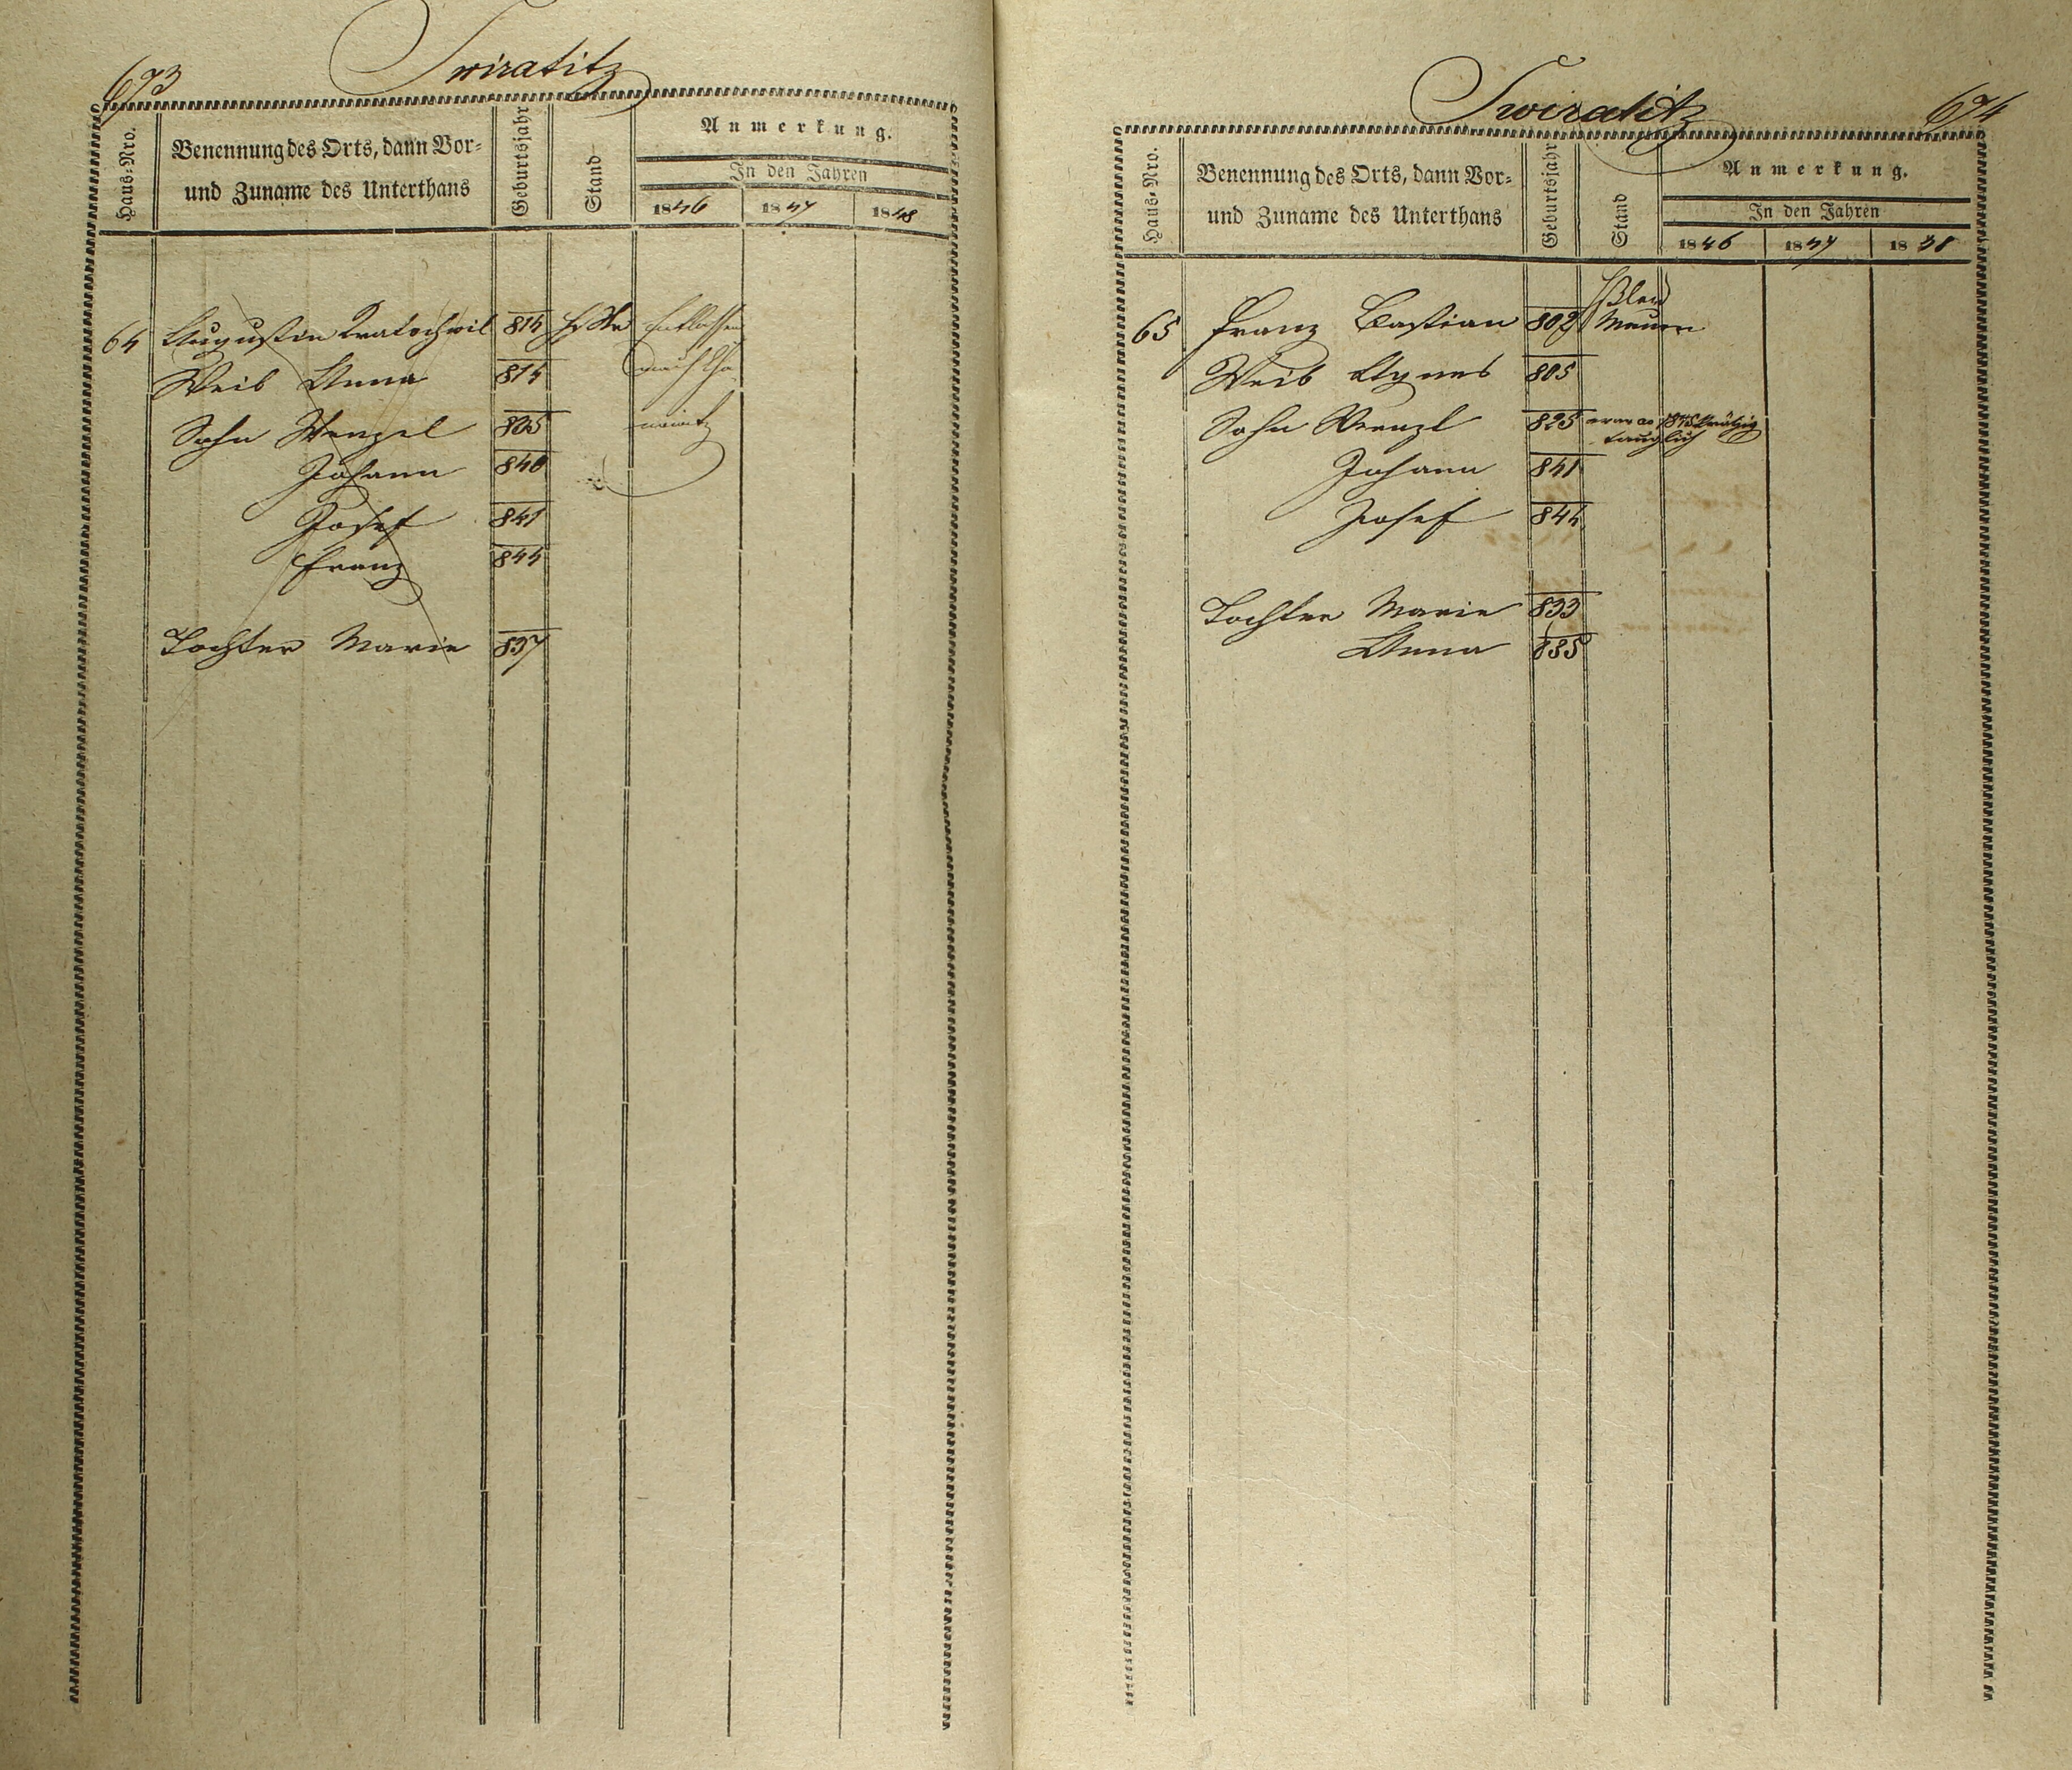 673
Swiratitz
Haus-Nro.
Benennung des Orts, dann Vor-
und Zuname des Unterthans
Geburtsjahr
Stand
Anmerkung.
In den Jahren
1846 1847 1848
64 Augustin Kratochwil 814 Entlassen
Weib Anna 814 nach
Sohn Wenzel 835
Johann 840
Josef 841
Franz 844
Tochter Marie 837
Swiratitz
674
Haus-Nro.
Benennung des Orts, dann Vor-
und Zuname des Unterthans
Geburtsjahr
Stand
Anmerkung.
In den Jahren
1846 1847 1848
65 Franz Bastian 802
Weib Agnes 805
Sohn Wenzl 825
tauglich
Johann 841
Josef 844
Tochter Marie 833
Anna 835